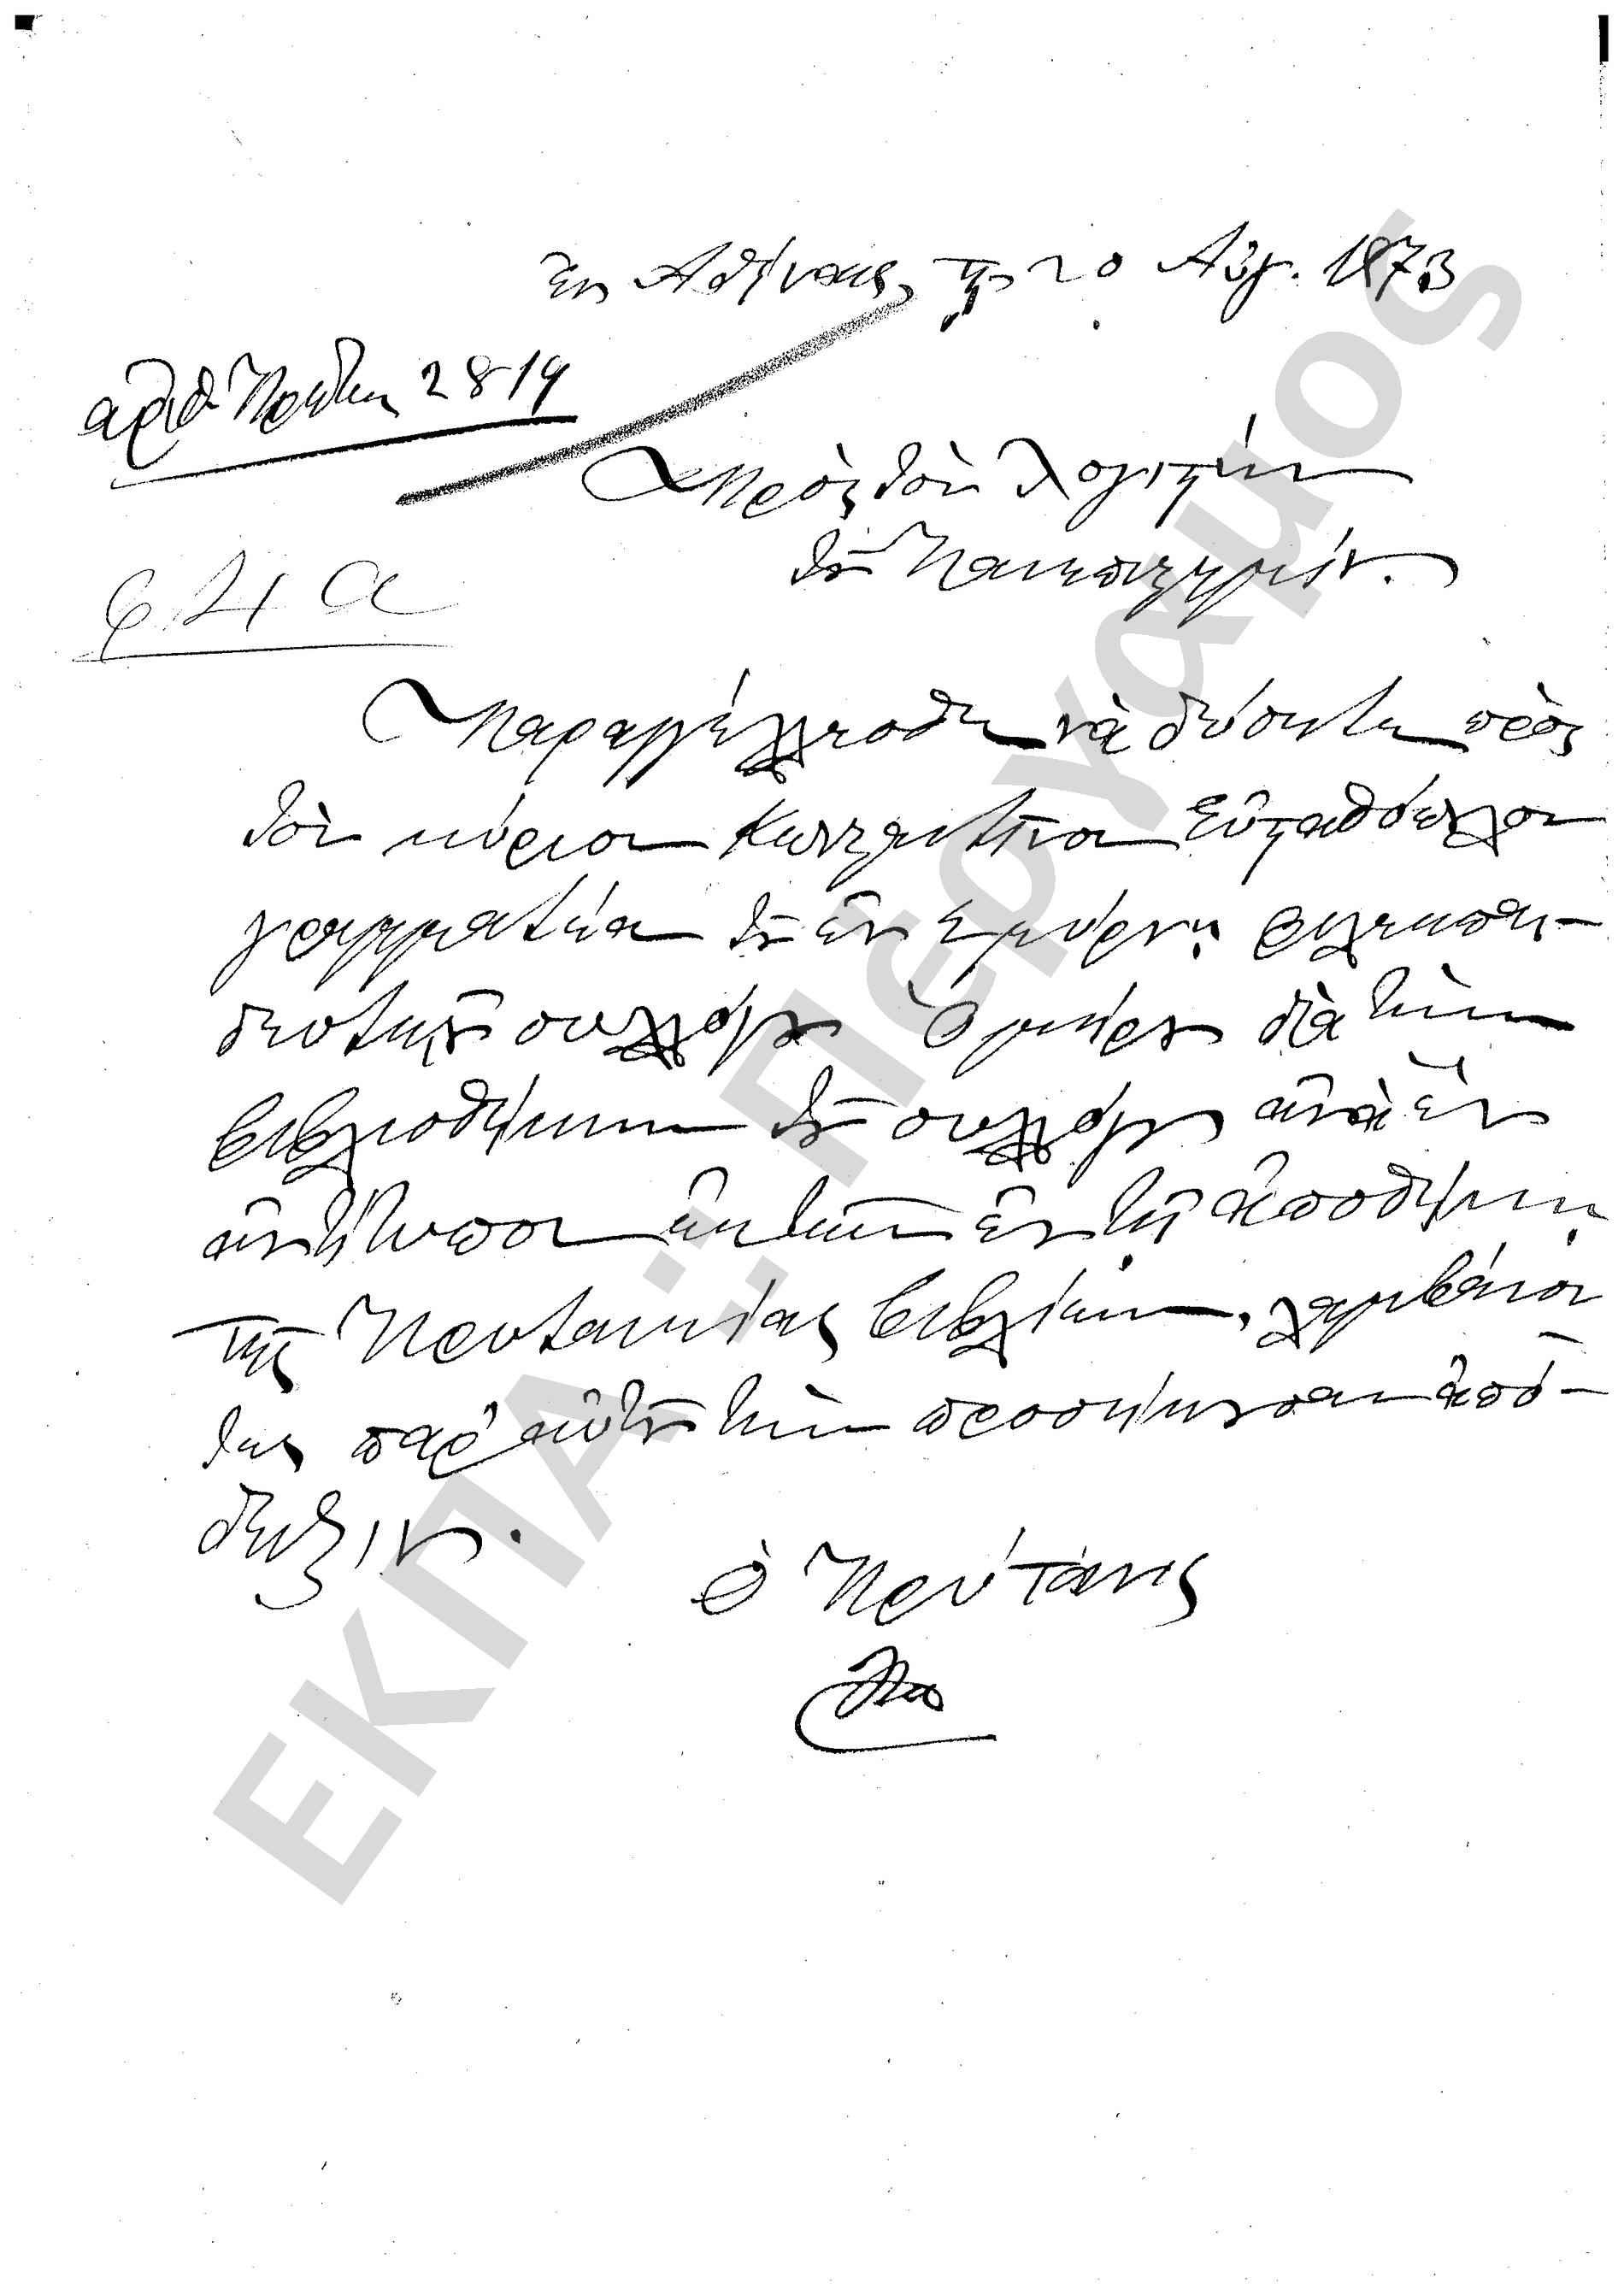 ἐν Ἀθήναις, τῇ 20 Αὐγ. 1873
ἀριθ. Πρωτ. 2819
Πρὸς τὸν λογιστὴν
τοῦ Πανεπιστημίου.
Φ. 21 α
Παραγγέλλεσθε νὰ δώσητε πρὸς
τὸν κύριον Κωνσταντῖνον Εὐσταθόπουλον
γραμματέα τοῦ ἐν Σμύρνῃ φιλεκπαι-
δευτικοῦ συλλόγου Ὁμήρου διὰ τὴν
βιβλιοθήκην τοῦ συλλόγου ἀνὰ ἓν
ἀντίτυπον ἐκ τῶν ἐν τῇ ἀποθήκῃ
τῆς Πρυτανείας βιβλίων, λαμβάνον
τες παρ' αὐτοῦ τὴν προσήκουσαν ἀπό-
δειξιν.
ὁ Πρύτανις
ΕΚΠΑ: Πέργαμος